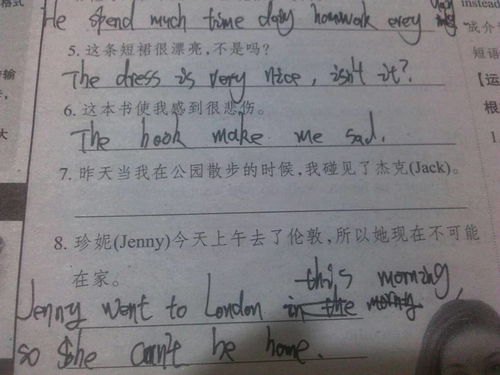 格式
He spend much time doing homework every
5. 这条短裙很漂亮,不是吗? instead
The dress is very nice, isn't it? 或介
短语
6. 这本书使我感到很悲伤。 【运
The book make me sad. 根
7. 昨天当我在公园散步的时候,我碰见了杰克(Jack)。 1.
8. 珍妮(Jenny)今天上午去了伦敦,所以她现在不可能
在家。 this morning,
Jenny went to London in the
so she can't be home.